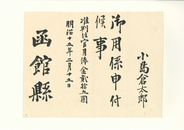 小島倉太郎
御用係申付
候事
准判任官月俸金貳拾五圓
明治十五年三月十五日
函館縣